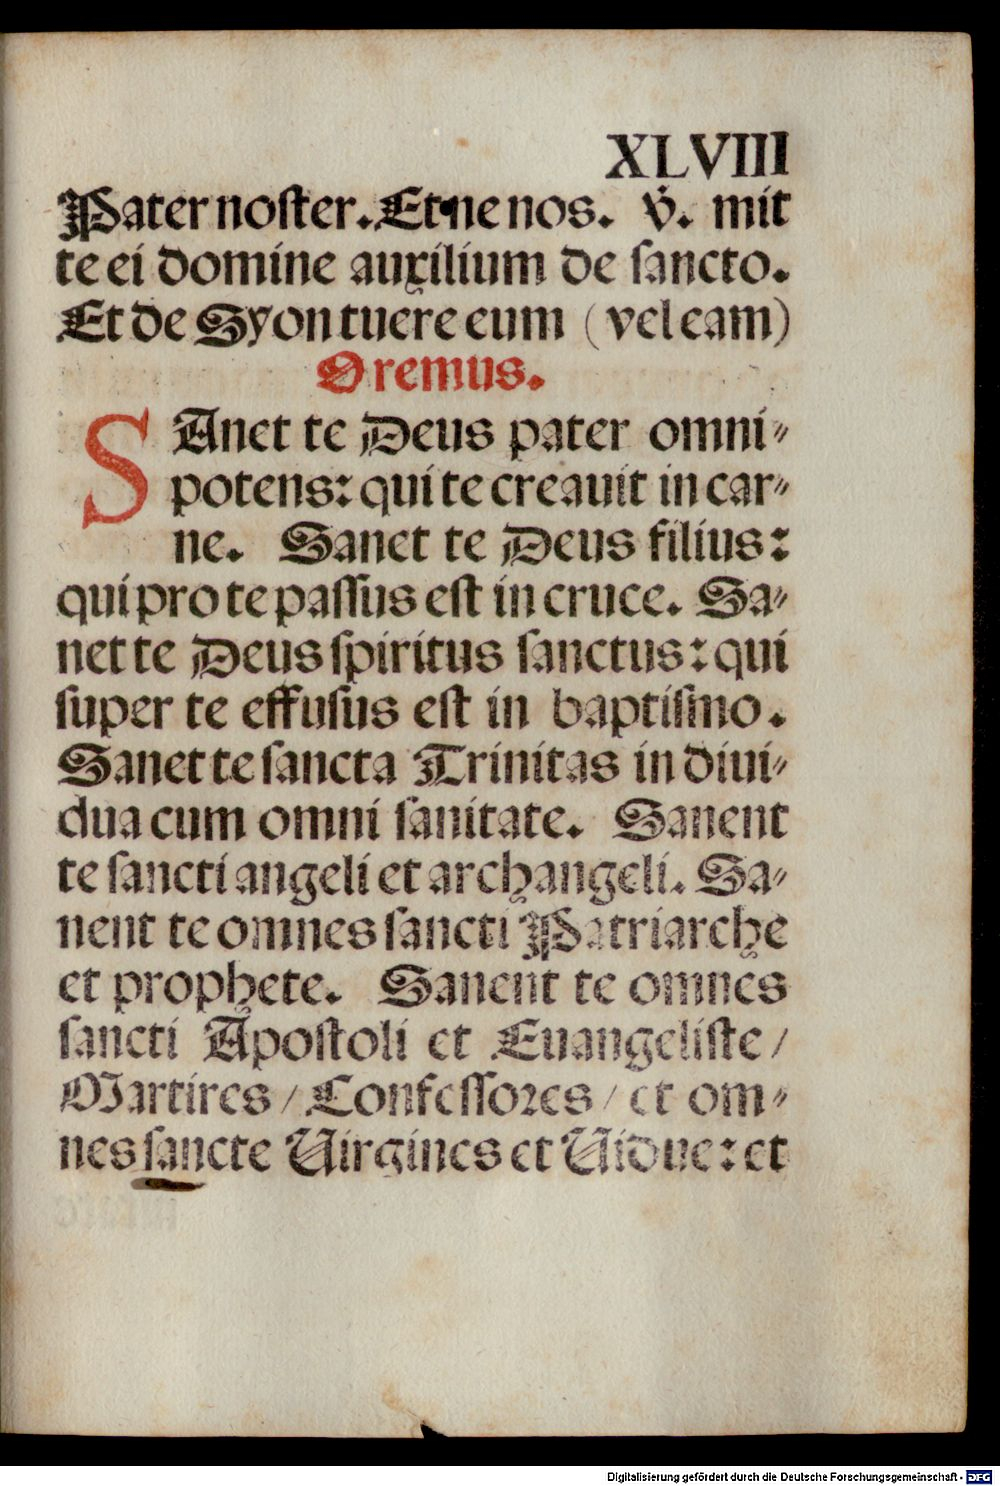 XLVIII
Pater noster. Et ne nos. v̇. mit
te ei domine auxilium de sancto.
Et de Syon tuere eum (vel eam)
Oremus.
SAnet te Deus pater omni-
potens: qui te creauit in car-
ne. Sanet te Deus filius:
qui pro te passus est in cruce. Sa-
net te Deus spiritus sanctus: qui
super te effusus est in baptismo.
Sanet te sancta Trinitas in diui-
dua cum omni sanitate. Sanent
te sancti angeli et archangeli. Sa-
nent te omnes sancti Patriarche
et prophete. Sanent te omnes
sancti Apostoli et Euangeliste /
Martires / Confessores / et om-
nes sancte Uirgines et Uidue: et
Digitalisierung gefördert durch die Deutsche Forschungsgemeinschaft - DFG